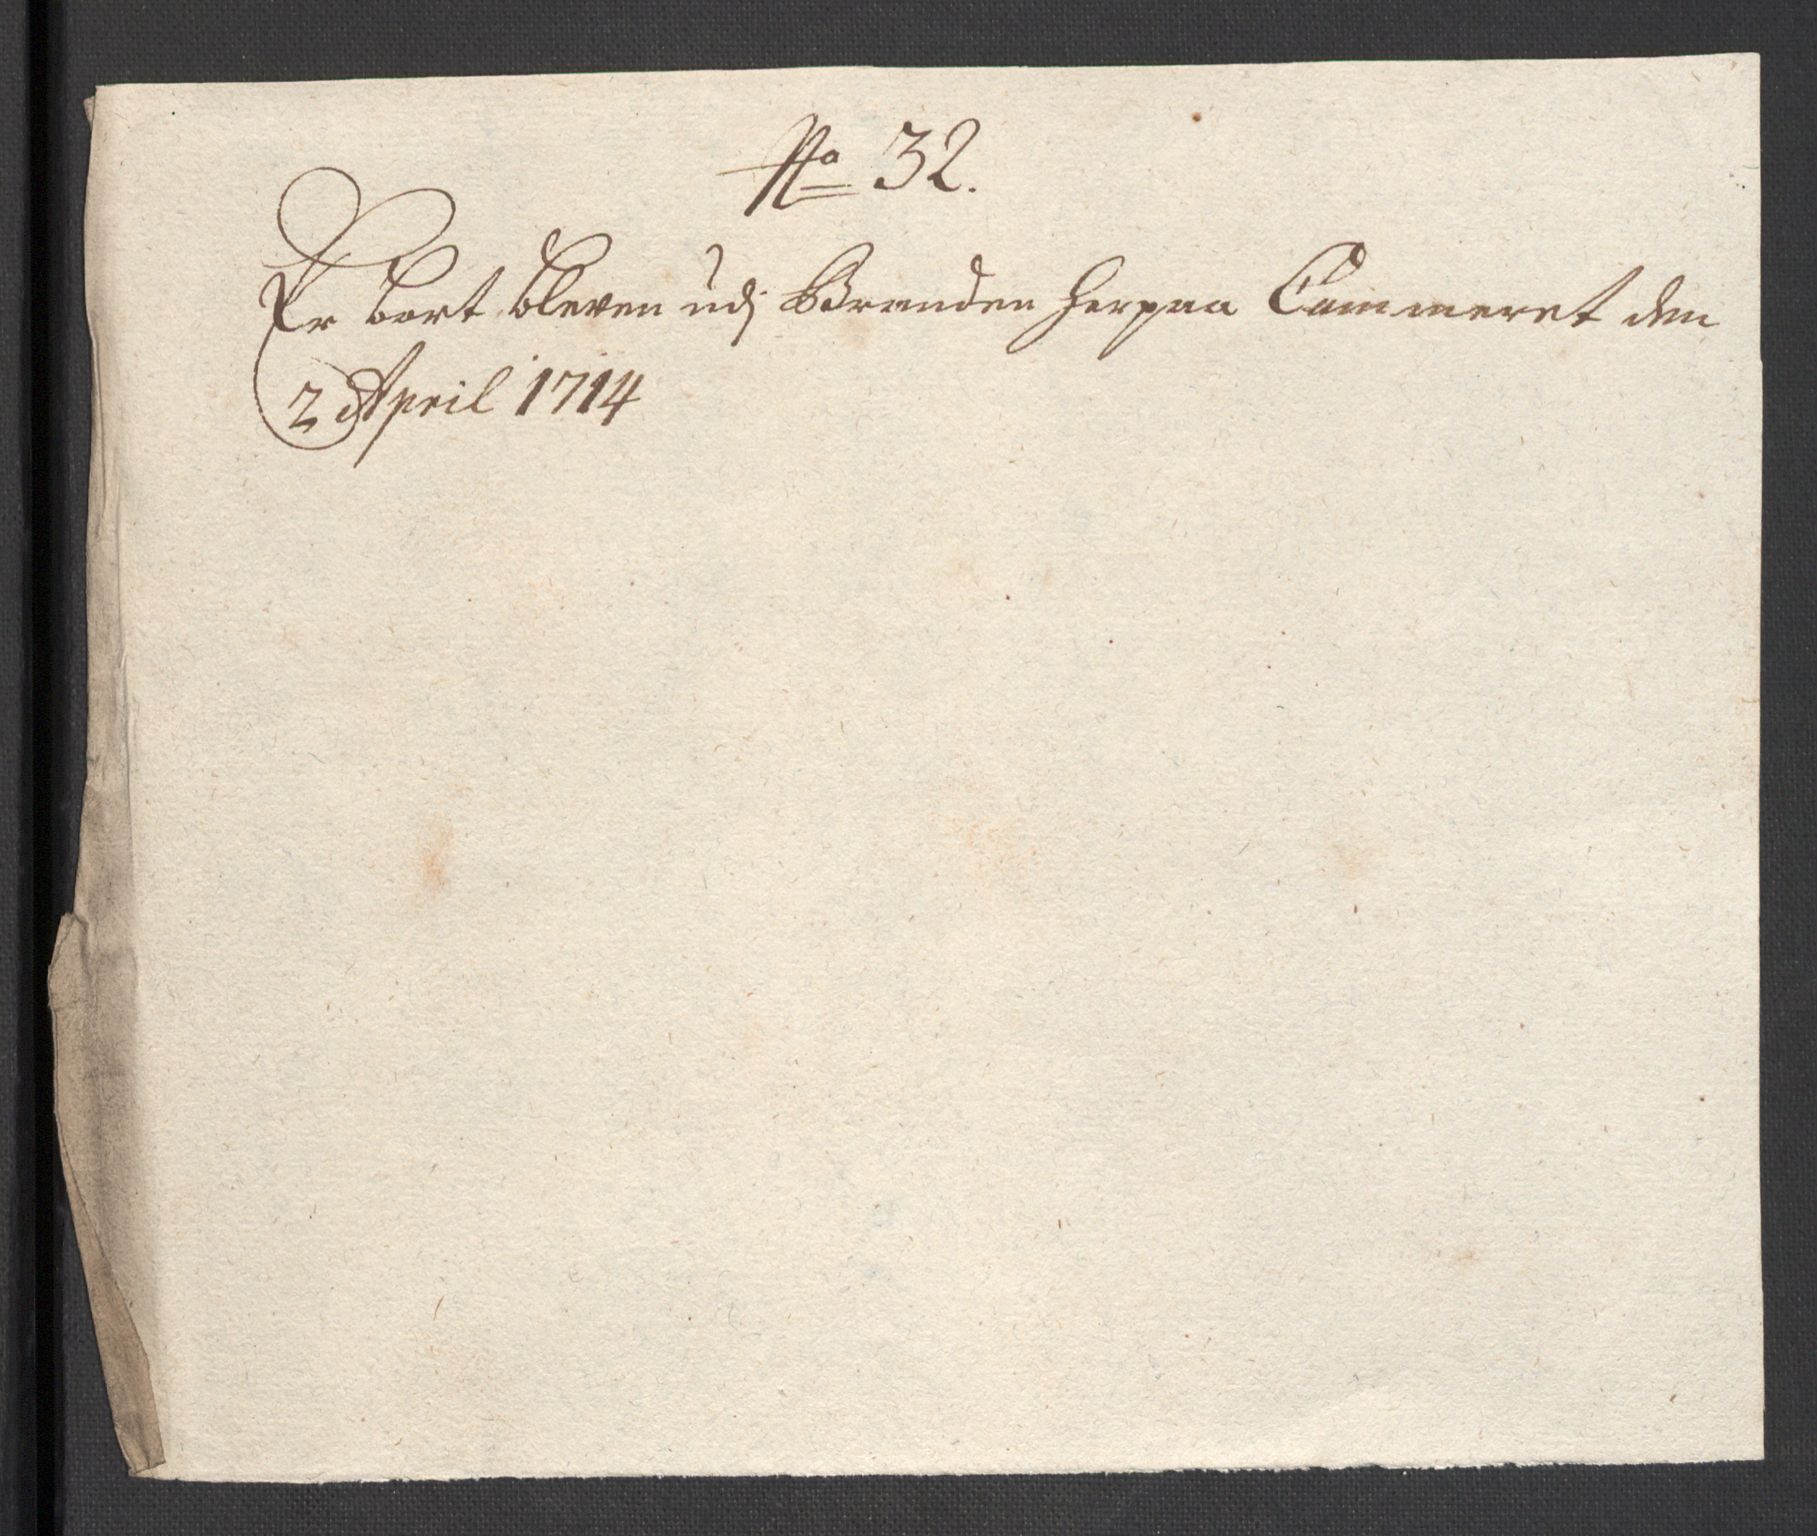 No 32.
Er bort bleven udj Branden herpaa Cammeret den
2 April 1714